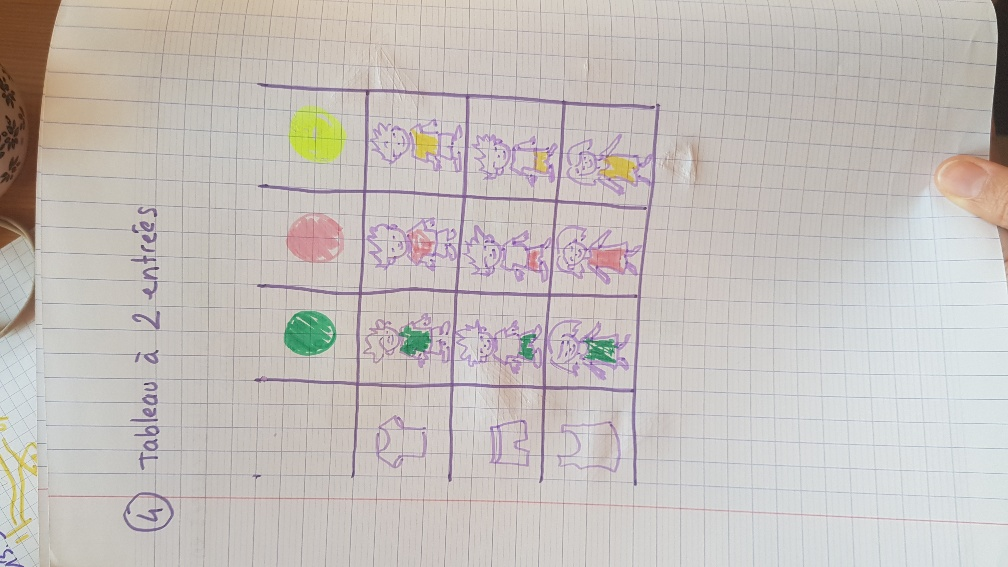 ④ Tableau à 2 entrées